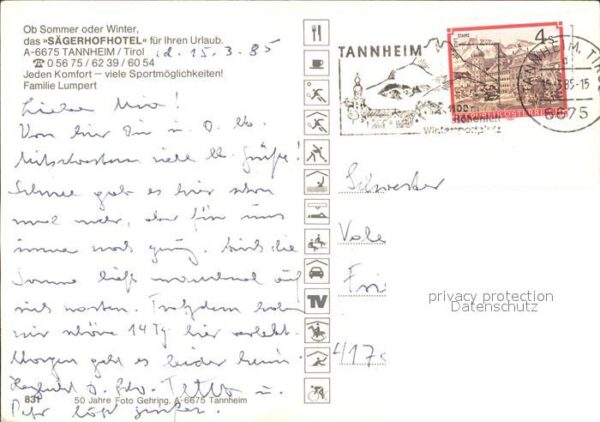 Ob Sommer oder Winter,
das »SÄGERHOFHOTEL« für Ihren Urlaub.
A-6675 TANNHEIM / Tirol
☎ 0 56 75 / 62 39 / 60 54
Jeden Komfort – viele Sportmöglichkeiten!
Familie Lumpert
d. 15.3.85
Von hier Dir u. d. lb.
Mitschwestern viele lb. Grüße!
Schnee gab es hier schon
mal mehr, aber für uns
immer noch genug. die
Sonne ließ manchmal auf
sich warten. Trotzdem haben
wir schöne 14 Tg. hier verlebt.
Morgen geht es leider heim.
u.
Peter läßt grüßen.
831
50 Jahre Foto Gehring, A-6675 Tannheim
TV
TANNHEIM
1100 m
Höhenluft
Wintersportplatz
STAMS
4 S
REPUBLIK ÖSTERREICH
TANNHEIM, TIROL
.3.85-15
6675
Schwester
417
privacy protection
Datenschutz